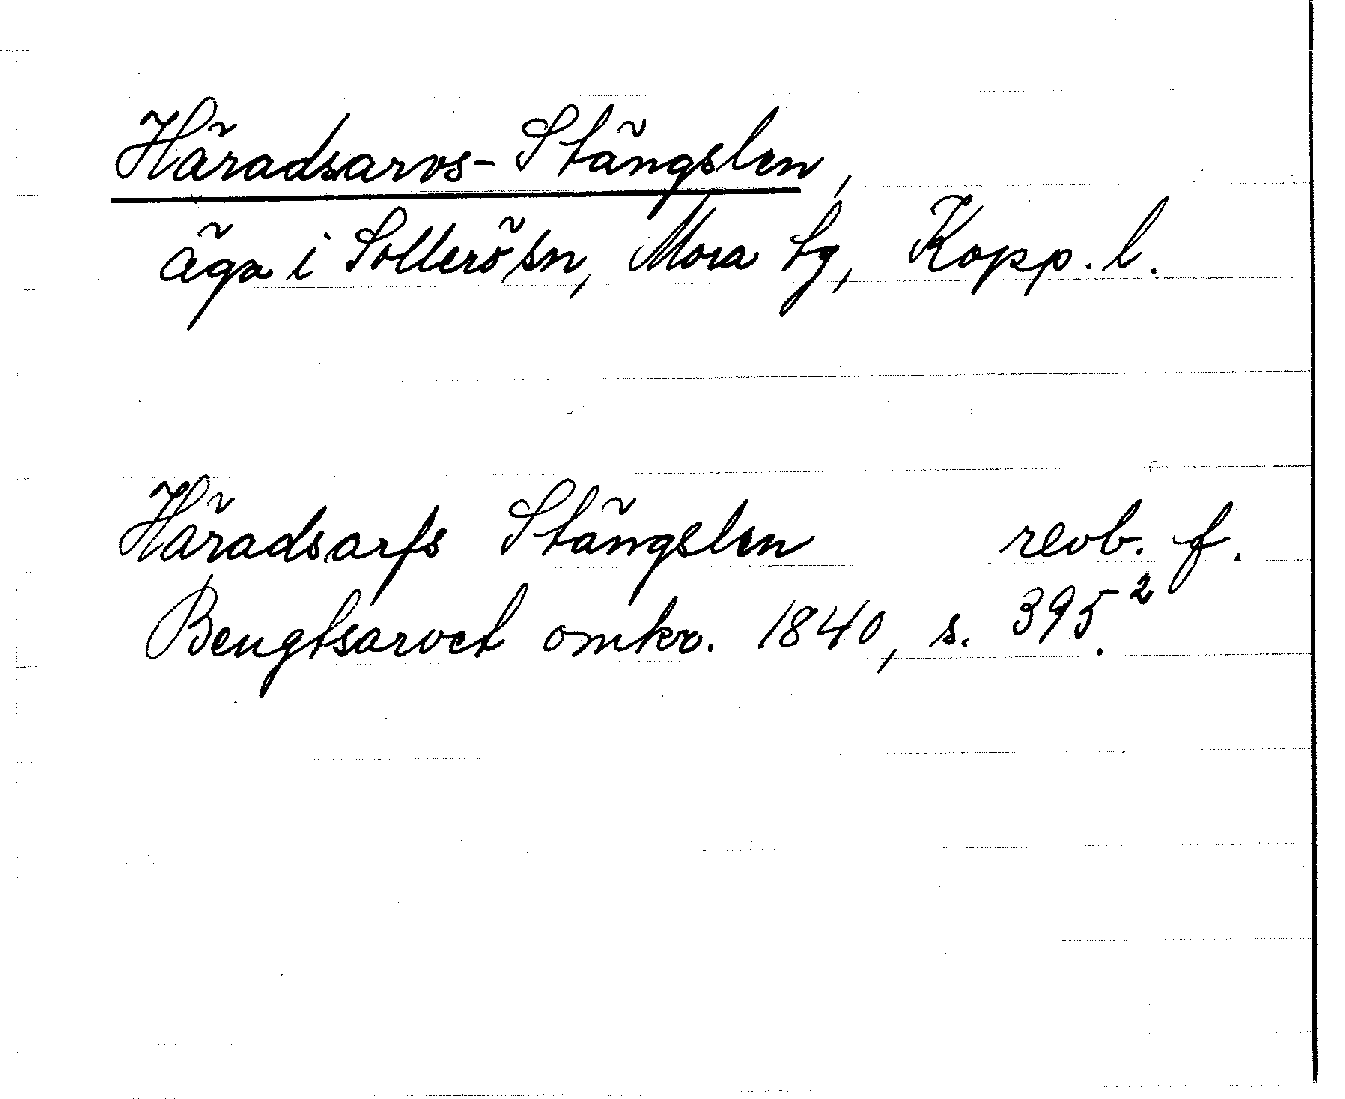 Häradsarvs-Stängslen,
äga i Sollerö sn, Mora tg, Kopp. l.
Häradsarfs Stängslen revb. f.
Bengtsarvet omkr. 1840, s. 395².